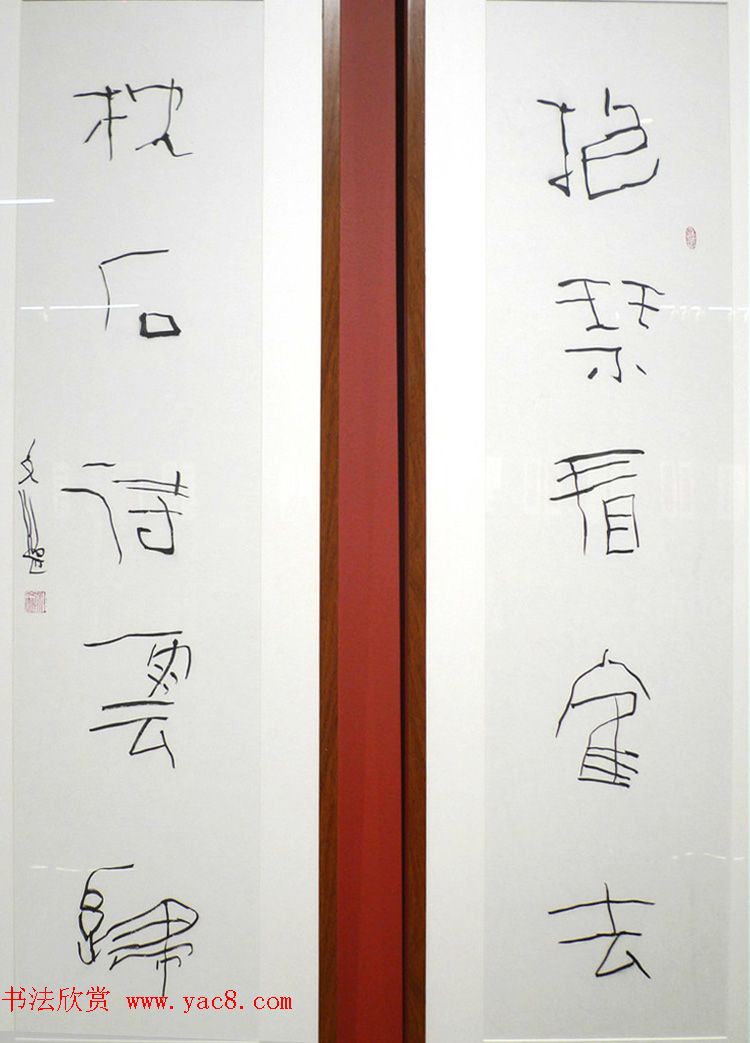 抱琴看鹤去
枕石待雲歸
书法欣赏 www.yac8.com